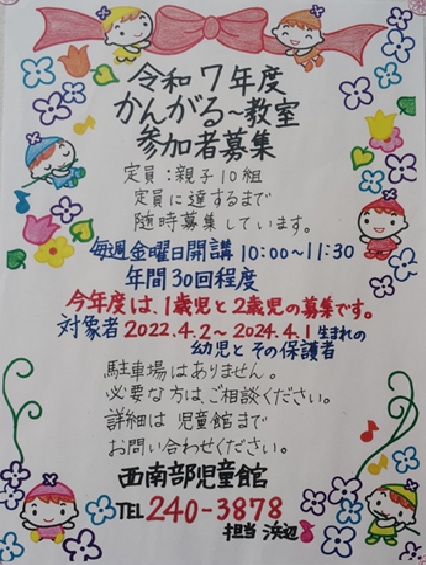 令和7年度
かんがる～教室
参加者募集
定員：親子10組
定員に達するまで
随時募集しています。
毎週金曜日開講10:00～11:30
年間30回程度
今年度は、1歳児と2歳児の募集です。
対象者2022.4.2～2024.4.1生まれの
幼児とその保護者
駐車場はありません。
必要な方は、ご相談ください。
詳細は児童館まで
お問い合わせください。
西南部児童館
TEL240-3878
担当 浜辺